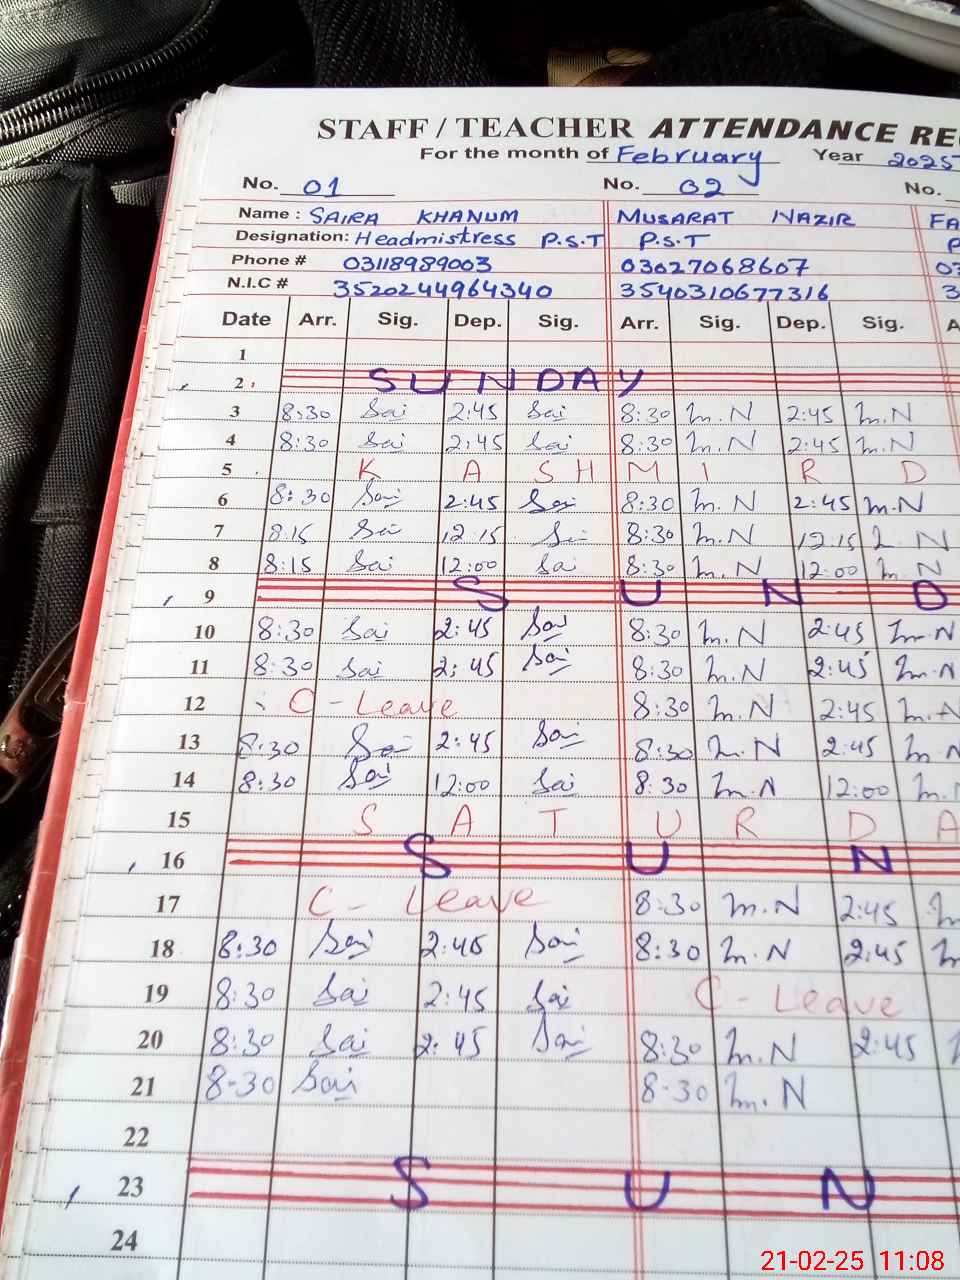 STAFF / TEACHER ATTENDANCE RE
For the month of February Year 2025
No. 01 No. 02 No.
Name : SAIRA KHANUM MUSARAT NAZIR FA
Designation: Headmistress P.S.T P.S.T P
Phone # 03118989003 03027068607 03
N.I.C # 3520244964340 3540310677316 3
Date Arr. Sig. Dep. Sig. Arr. Sig. Dep. Sig. A
1
2 SUNDAY
3 8:30 Sai 2:45 Sai 8:30 M.N 2:45 M.N
4 8:30 Sai 2:45 Sai 8:30 M.N 2:45 M.N
5 KASHMIR D
6 8:30 Sai 2:45 Sai 8:30 M.N 2:45 M.N
7 8:15 Sai 12:15 Sai 8:30 M.N 12:15 M.N
8 8:15 Sai 12:00 Sai 8:30 M.N 12:00 M.N
9 SUND
10 8:30 Sai 2:45 Sai 8:30 M.N 2:45 M.N
11 8:30 Sai 2:45 Sai 8:30 M.N 2:45 M.N
12 C - Leave 8:30 M.N 2:45 M.N
13 8:30 Sai 2:45 Sai 8:30 M.N 2:45 M.N
14 8:30 Sai 12:00 Sai 8:30 M.N 12:00 M.N
15 SATURDA
16 SUN
17 C - Leave 8:30 M.N 2:45 M
18 8:30 Sai 2:45 Sai 8:30 M.N 2:45 M
19 8:30 Sai 2:45 Sai C - Leave
20 8:30 Sai 2:45 Sai 8:30 M.N 2:45
21 8-30 Sai 8-30 M.N
22
23 SUN
24
21-02-25 11:08